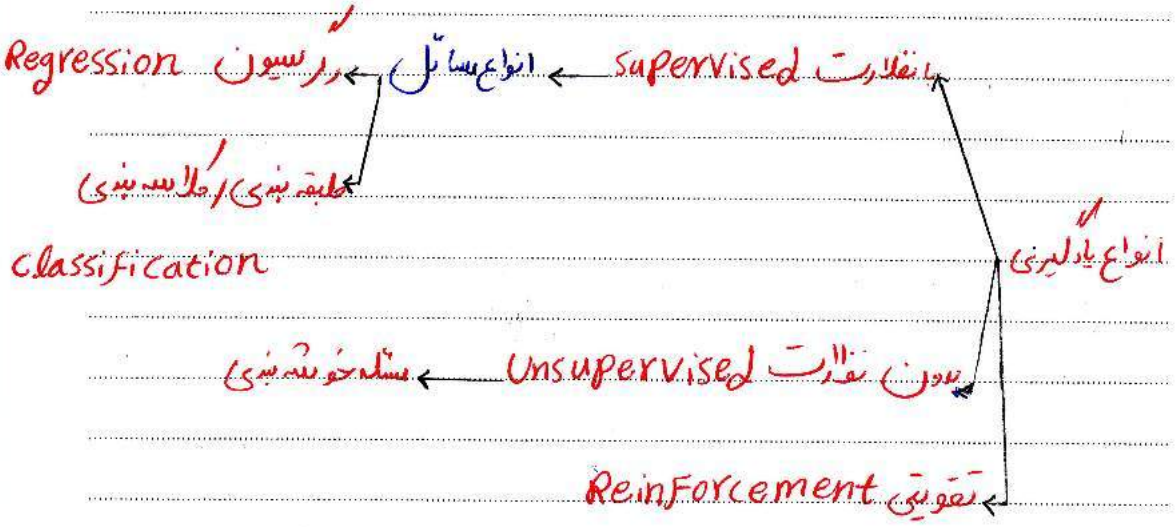 با نظارت Supervised ← انواع مسائل ← رگرسیون Regression
طبقه بندی / کلاسه بندی
classification
انواع یادگیری
بدون نظارت Unsupervised ← مسئله خوشه بندی
تقویتی Reinforcement